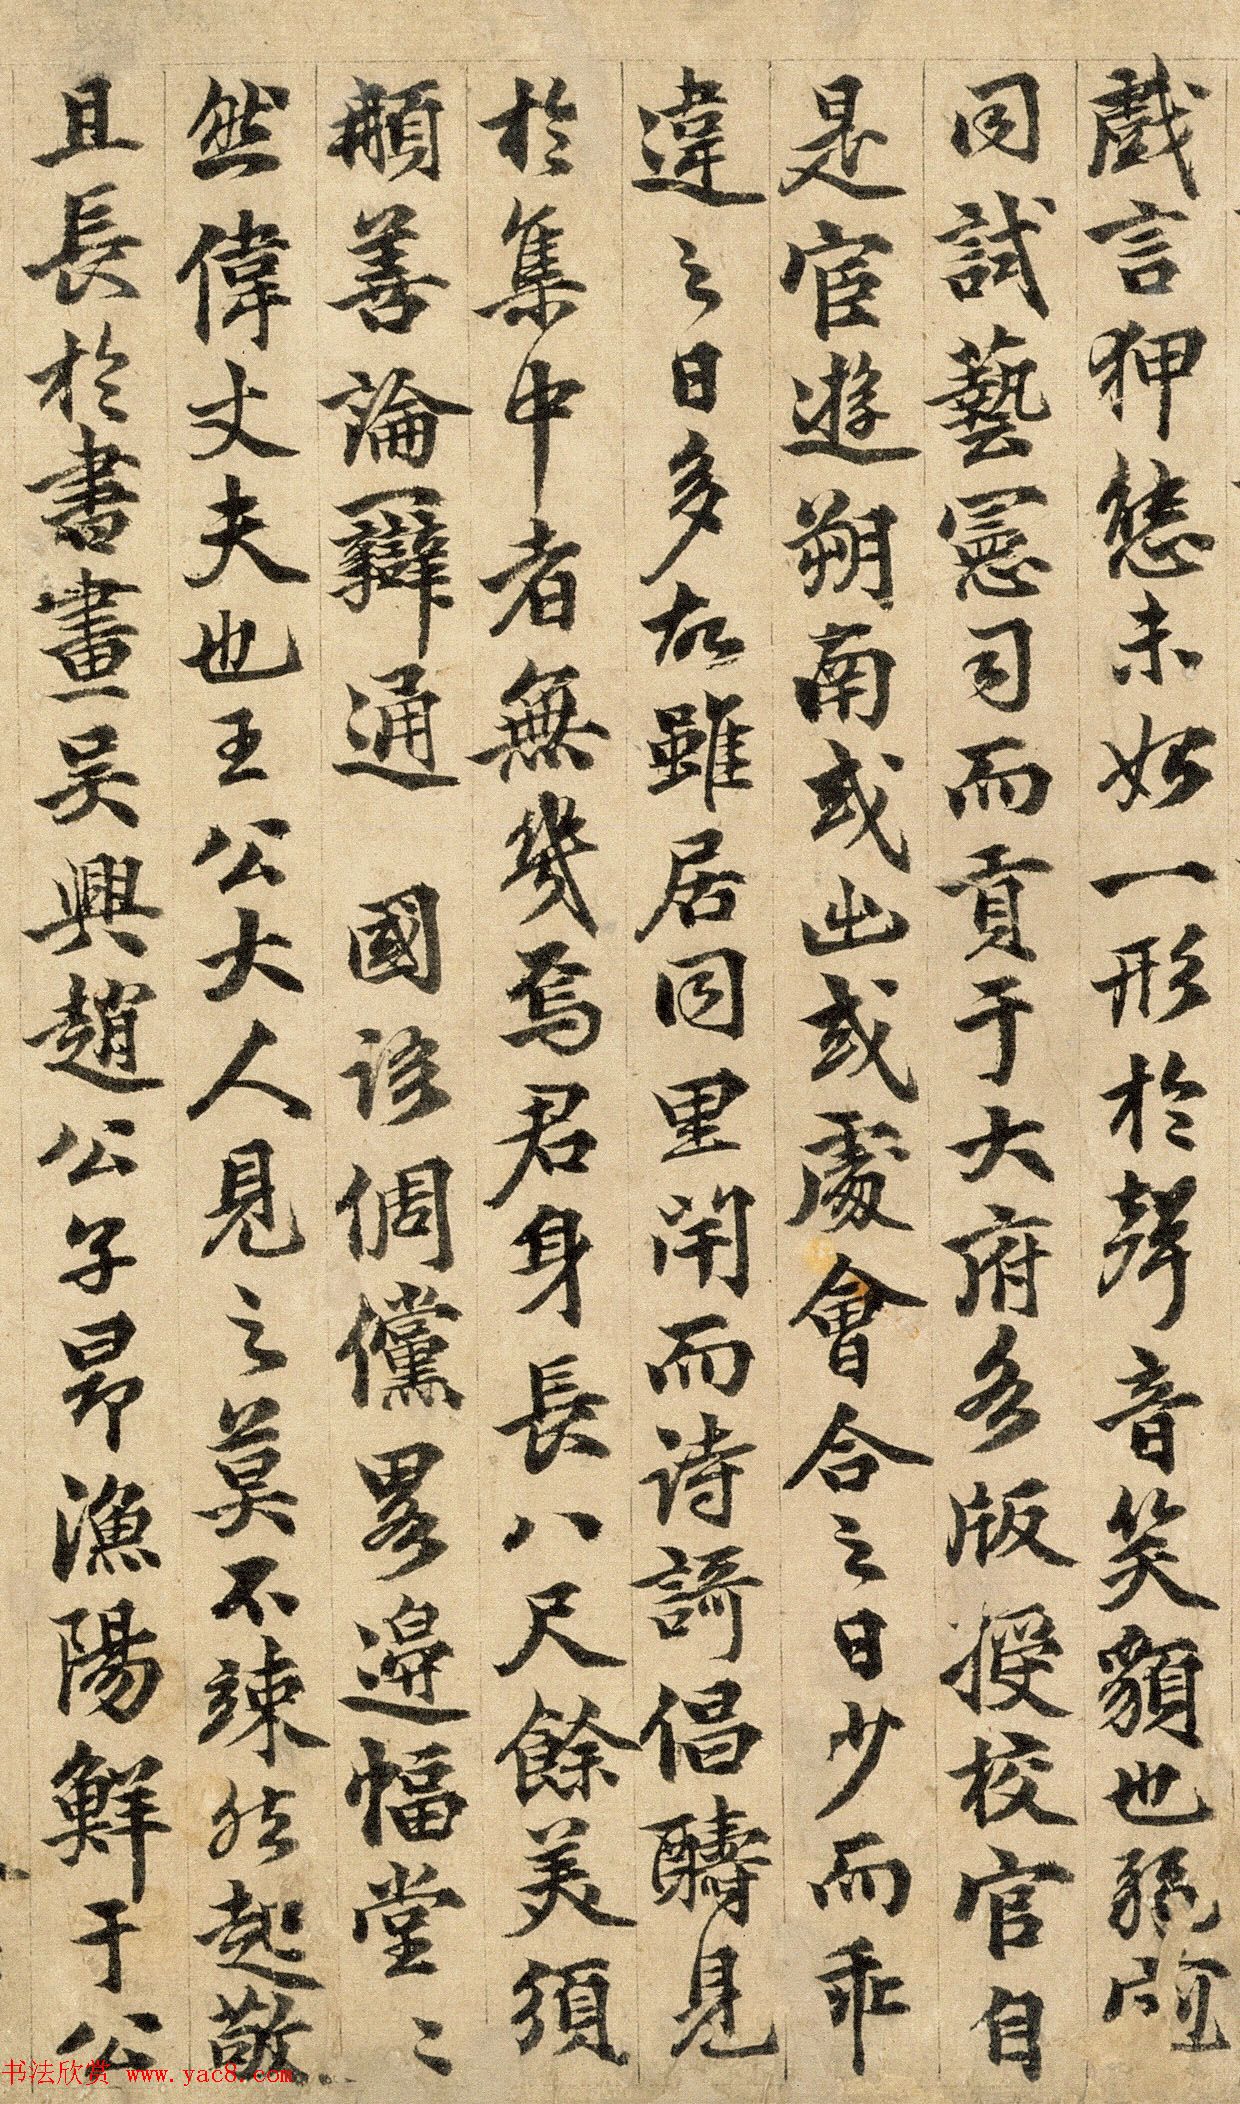 戲言狎態未始一形於聲音笑貌也
同試藝憲司而貢于大府多版授校官自
是宦遊朔南或出或處會合之日少而乖
違之日多故雖居同里閈而詩謌倡疇見
於集中者無幾焉君身長八尺餘美須
顏善論辯通 國語倜儻畧邊幅堂〻
然偉丈夫也王公大人見之莫不竦然起敬
且長於書畫吳興趙公子昂漁陽鮮于公
书法欣赏 www.yac8.com